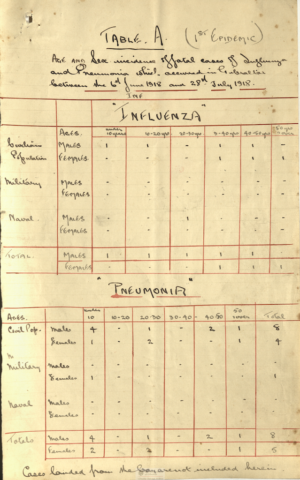 TABLE. A. (1st EPIDEMIC)
AGE AND Sex incidence of fatal cases of Influenza
and Pneumonia which occurred in Gibraltar
between the 6th June 1918 and 28th July 1918.
"INFLUENZA"
AGES. under 10 years 10-20 yrs 20-30 yrs 30-40 yrs 40-50 yrs
Civilian MALES 1 1 - 1 1 -
Population FEMALES - - - 1 1 1
Military MALES - - - - - -
FEMALES - - - - - -
Naval MALES - - 1 - - -
FEMALES - - - - - -
TOTAL. MALES 1 1 1 1 1 -
FEMALES - - - 1 1 1
"PNEUMONIA"
AGES. under 10 10-20 20-30 30-40 40-50 50 over Total
Civil Pop. Males 4 - 1 - 2 1 8
Females 1 - 2 - - 1 4
Military Males - - - - - - -
Females 1 - - - - - 1
Naval Males - - - - - - -
Females - - - - - -
Totals Males 4 - 1 - 2 1 8
Females 2 - 2 - - 1 5
Cases landed from the not included herein